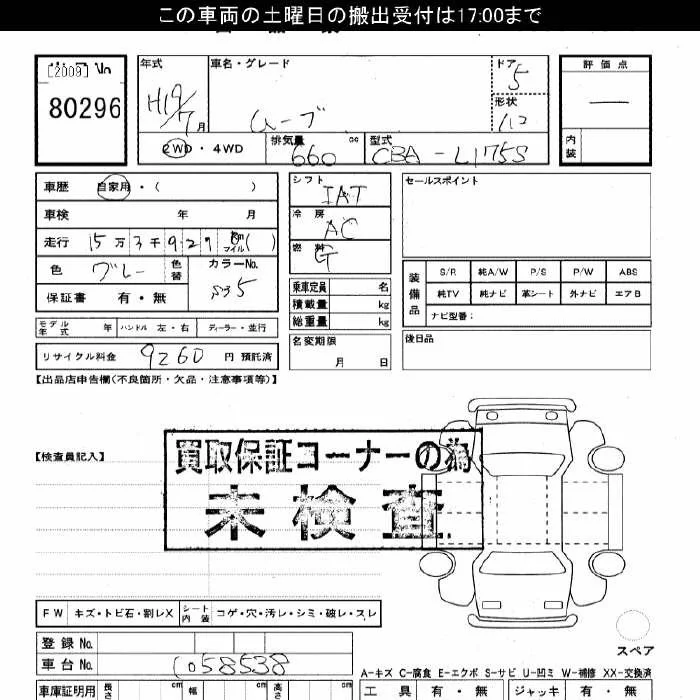 この車両の土曜日の搬出受付は17:00まで
[2009] No
80296
年式 H19/7月
車名・グレード ムーブ
ドア 5
形状
評価点 —
内装
2WD・4WD
排気量 660 cc
型式 CBA-L175S
車歴 自家用・( )
車検 年 月
走行 15万3千929 Km マイル ( )
色 グレー 色替
カラーNo. S35
保証書 有・無
モデル年式 年 ハンドル 左・右 ディーラー・並行
リサイクル料金 9260 円 預託済
シフト IAT
冷房 AC
燃料 G
乗車定員 名
積載量 kg
総重量 kg
名変期限
月 日
セールスポイント
装備品
S/R 純A/W P/S P/W ABS
純TV 純ナビ 革シート 外ナビ エアB
ナビ型番:
後日品
【出品店申告欄(不良箇所・欠品・注意事項等)】
【検査員記入】
買取保証コーナーの為
未検査
FW キズ・トビ石・割レX シート内装 コゲ・穴・汚レ・シミ・破レ・スレ
登録No.
車台No. 0058538
スペア
A-キズ C-腐食 E-エクボ S-サビ U-凹ミ W-補修 XX-交換済
車庫証明用 長さ cm 幅 cm 高さ cm
工具 有・無 ジャッキ 有・無